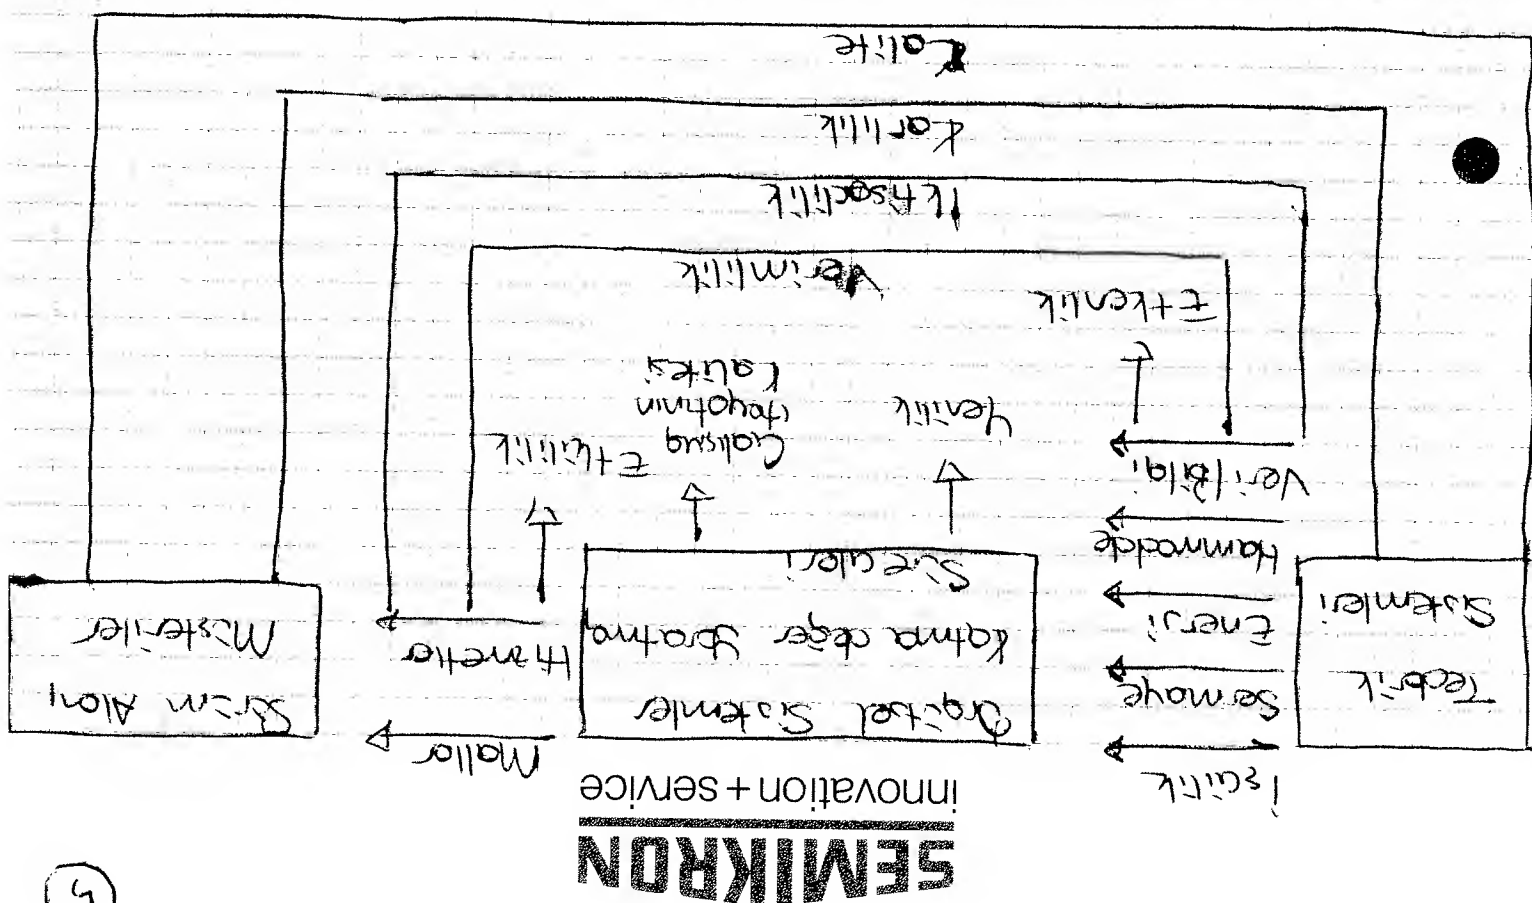 5
SEMIKRON
innovation + service
İşçilik
Sermaye
Enerji
Hammadde
Veri/Bilgi
Tedarik
Sistemleri
Örgütsel Sistemler
Katma değer yaratma
Süreçleri
Mallar
Hizmetler
Ürün Alan
Müşteriler
Etkenlik
Yenilik
Çalışma
Hayatının
Kalitesi
Etkililik
Verimlilik
Iktisadilik
Karlılık
Kalite